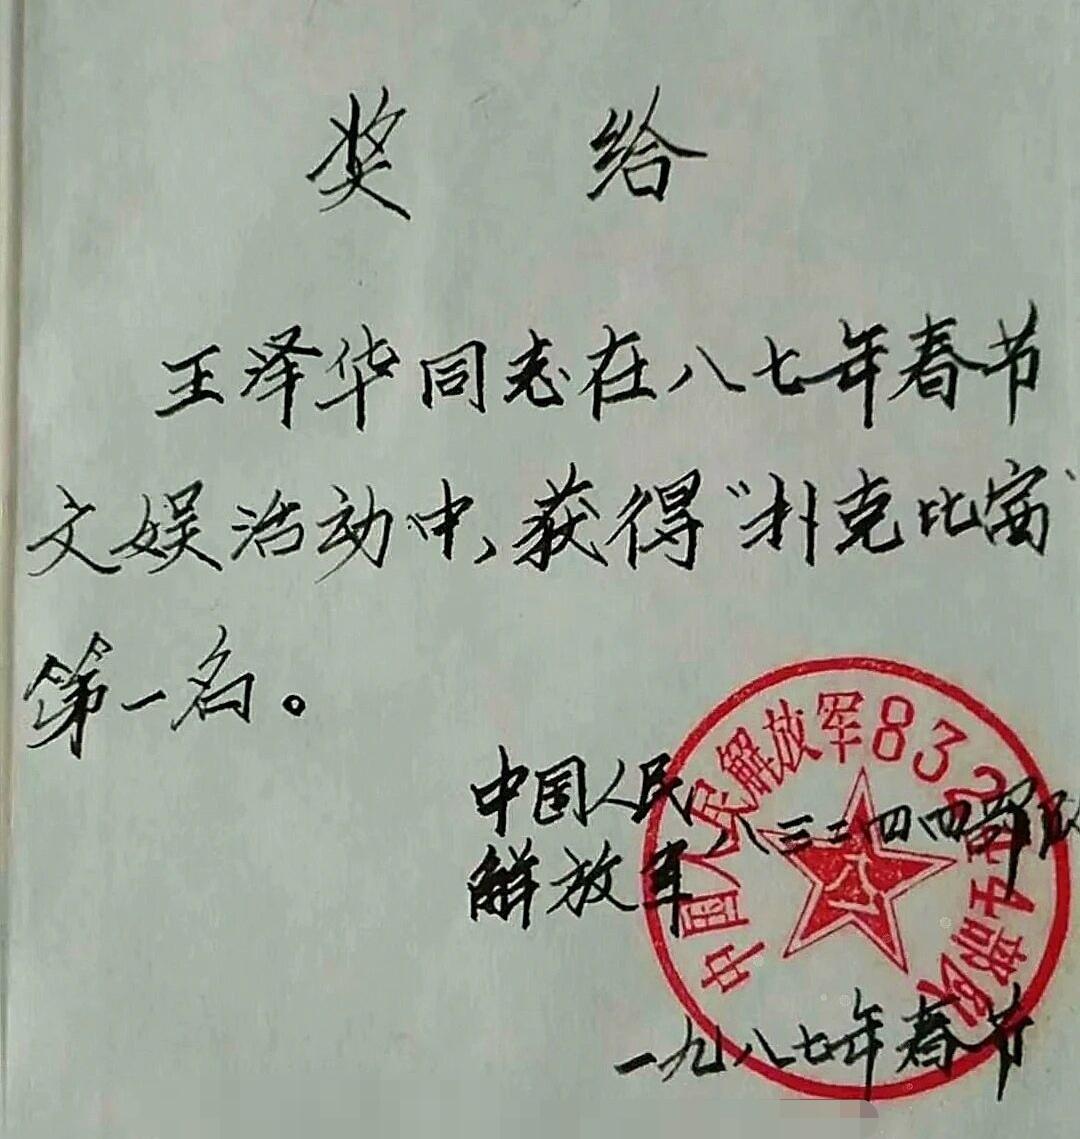 奖给
王泽华同志在八七年春节
文娱活动中,获得“扑克比赛”
第一名。
中国人民
解放军
八三二四四部队
一九八七年春节
中国人民解放军83244部队